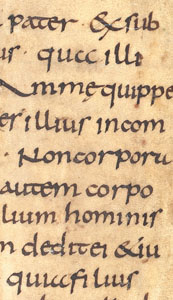 pater · & sub
us · quae illi
Animę quippe
er illius incom
· Non corporu
autem corpo
lium hominis
n dedit ei & iu
quia filius